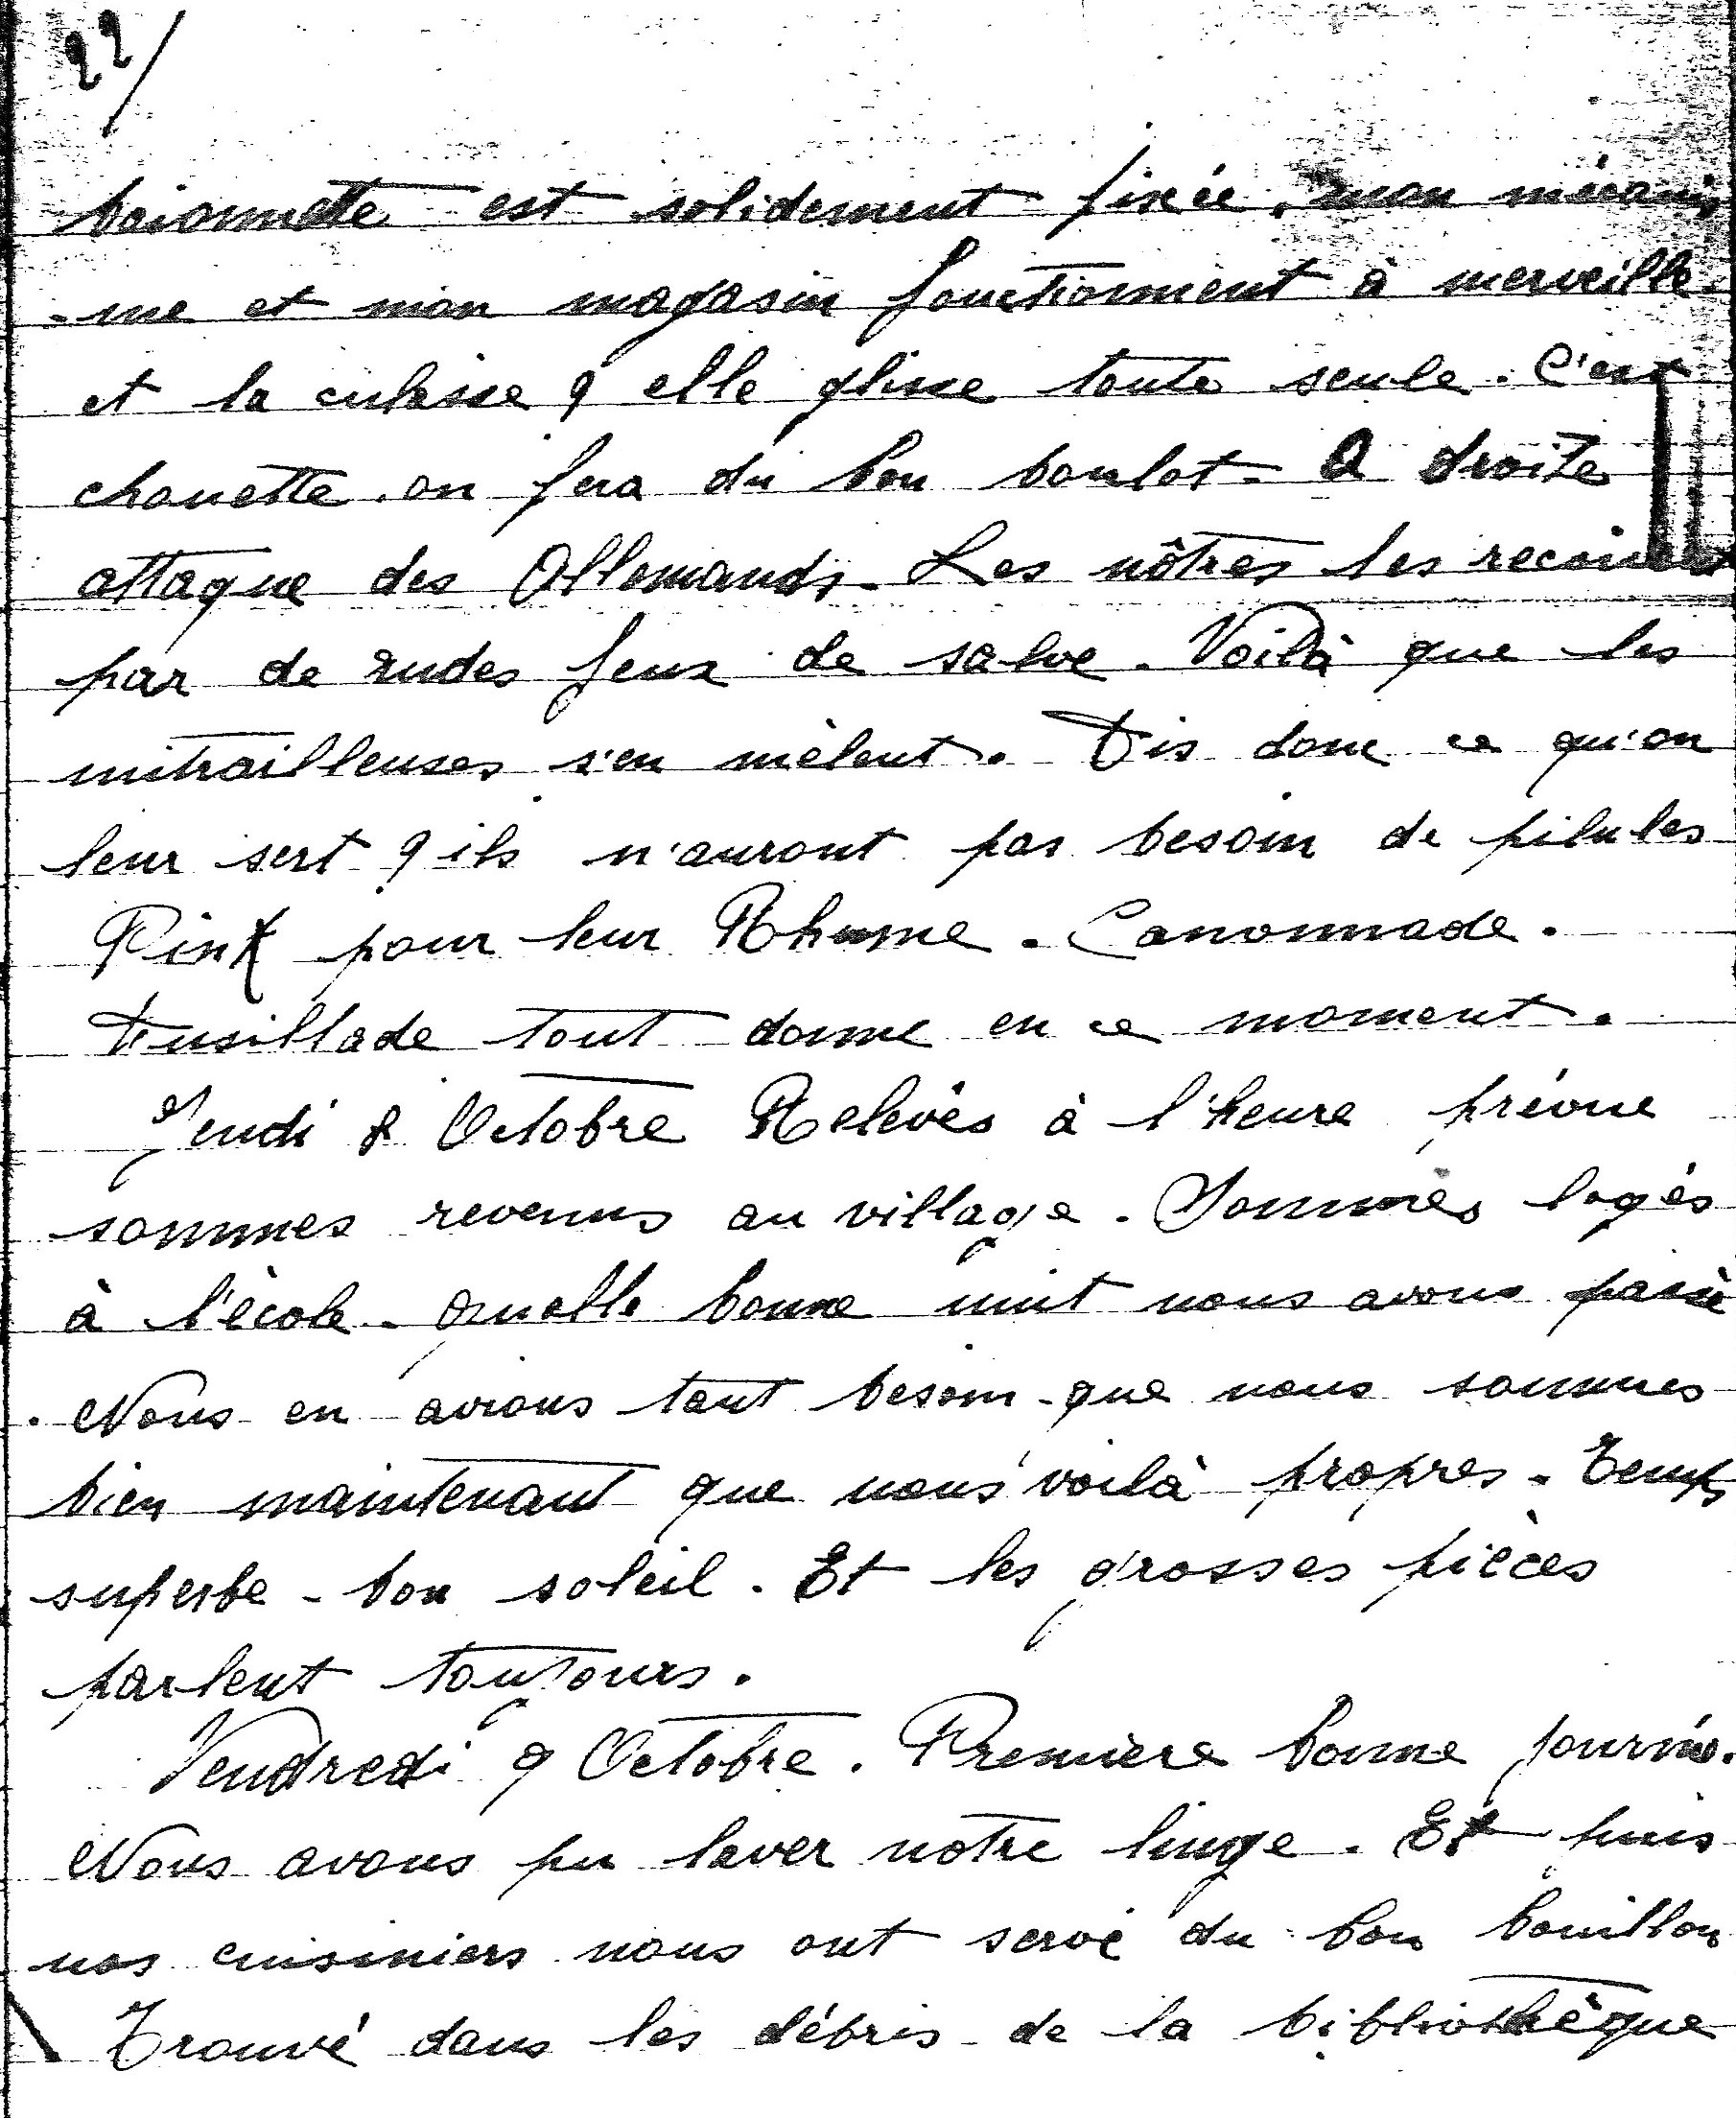 22/
baionnette est solidement fixée, mon mécanis
-me et mon magasin fonctionnent à merveille.
et la culasse ? elle glisse toute seule. C'est
chouette, on fera du bon boulot - A droite
attaque des Allemands. Les nôtres les reçoivent
par de rudes feux de salve. Voilà que les
mitrailleuses s'en mêlent. Dis donc ce qu'on
leur sert ? ils n'auront pas besoin de pilules
Pink pour leur Rhume. Canonnade.
Fusillade tout donne en ce moment.
Jeudi 8 Octobre Relevés à l'heure prévue
sommes revenus au village. Sommes logés
à l'école. Quelle bonne nuit nous avons passé
. Nous en avions tant besoin - que nous sommes
bien maintenant que nous voilà propres. Temps
superbe - bon soleil. Et les grosses pièces
parlent toujours.
Vendredi 9 Octobre. Première bonne journée.
Nous avons pu laver notre linge. Et puis
nos cuisiniers nous ont servi du bon bouillon
Trouvé dans les débris de la bibliothèque